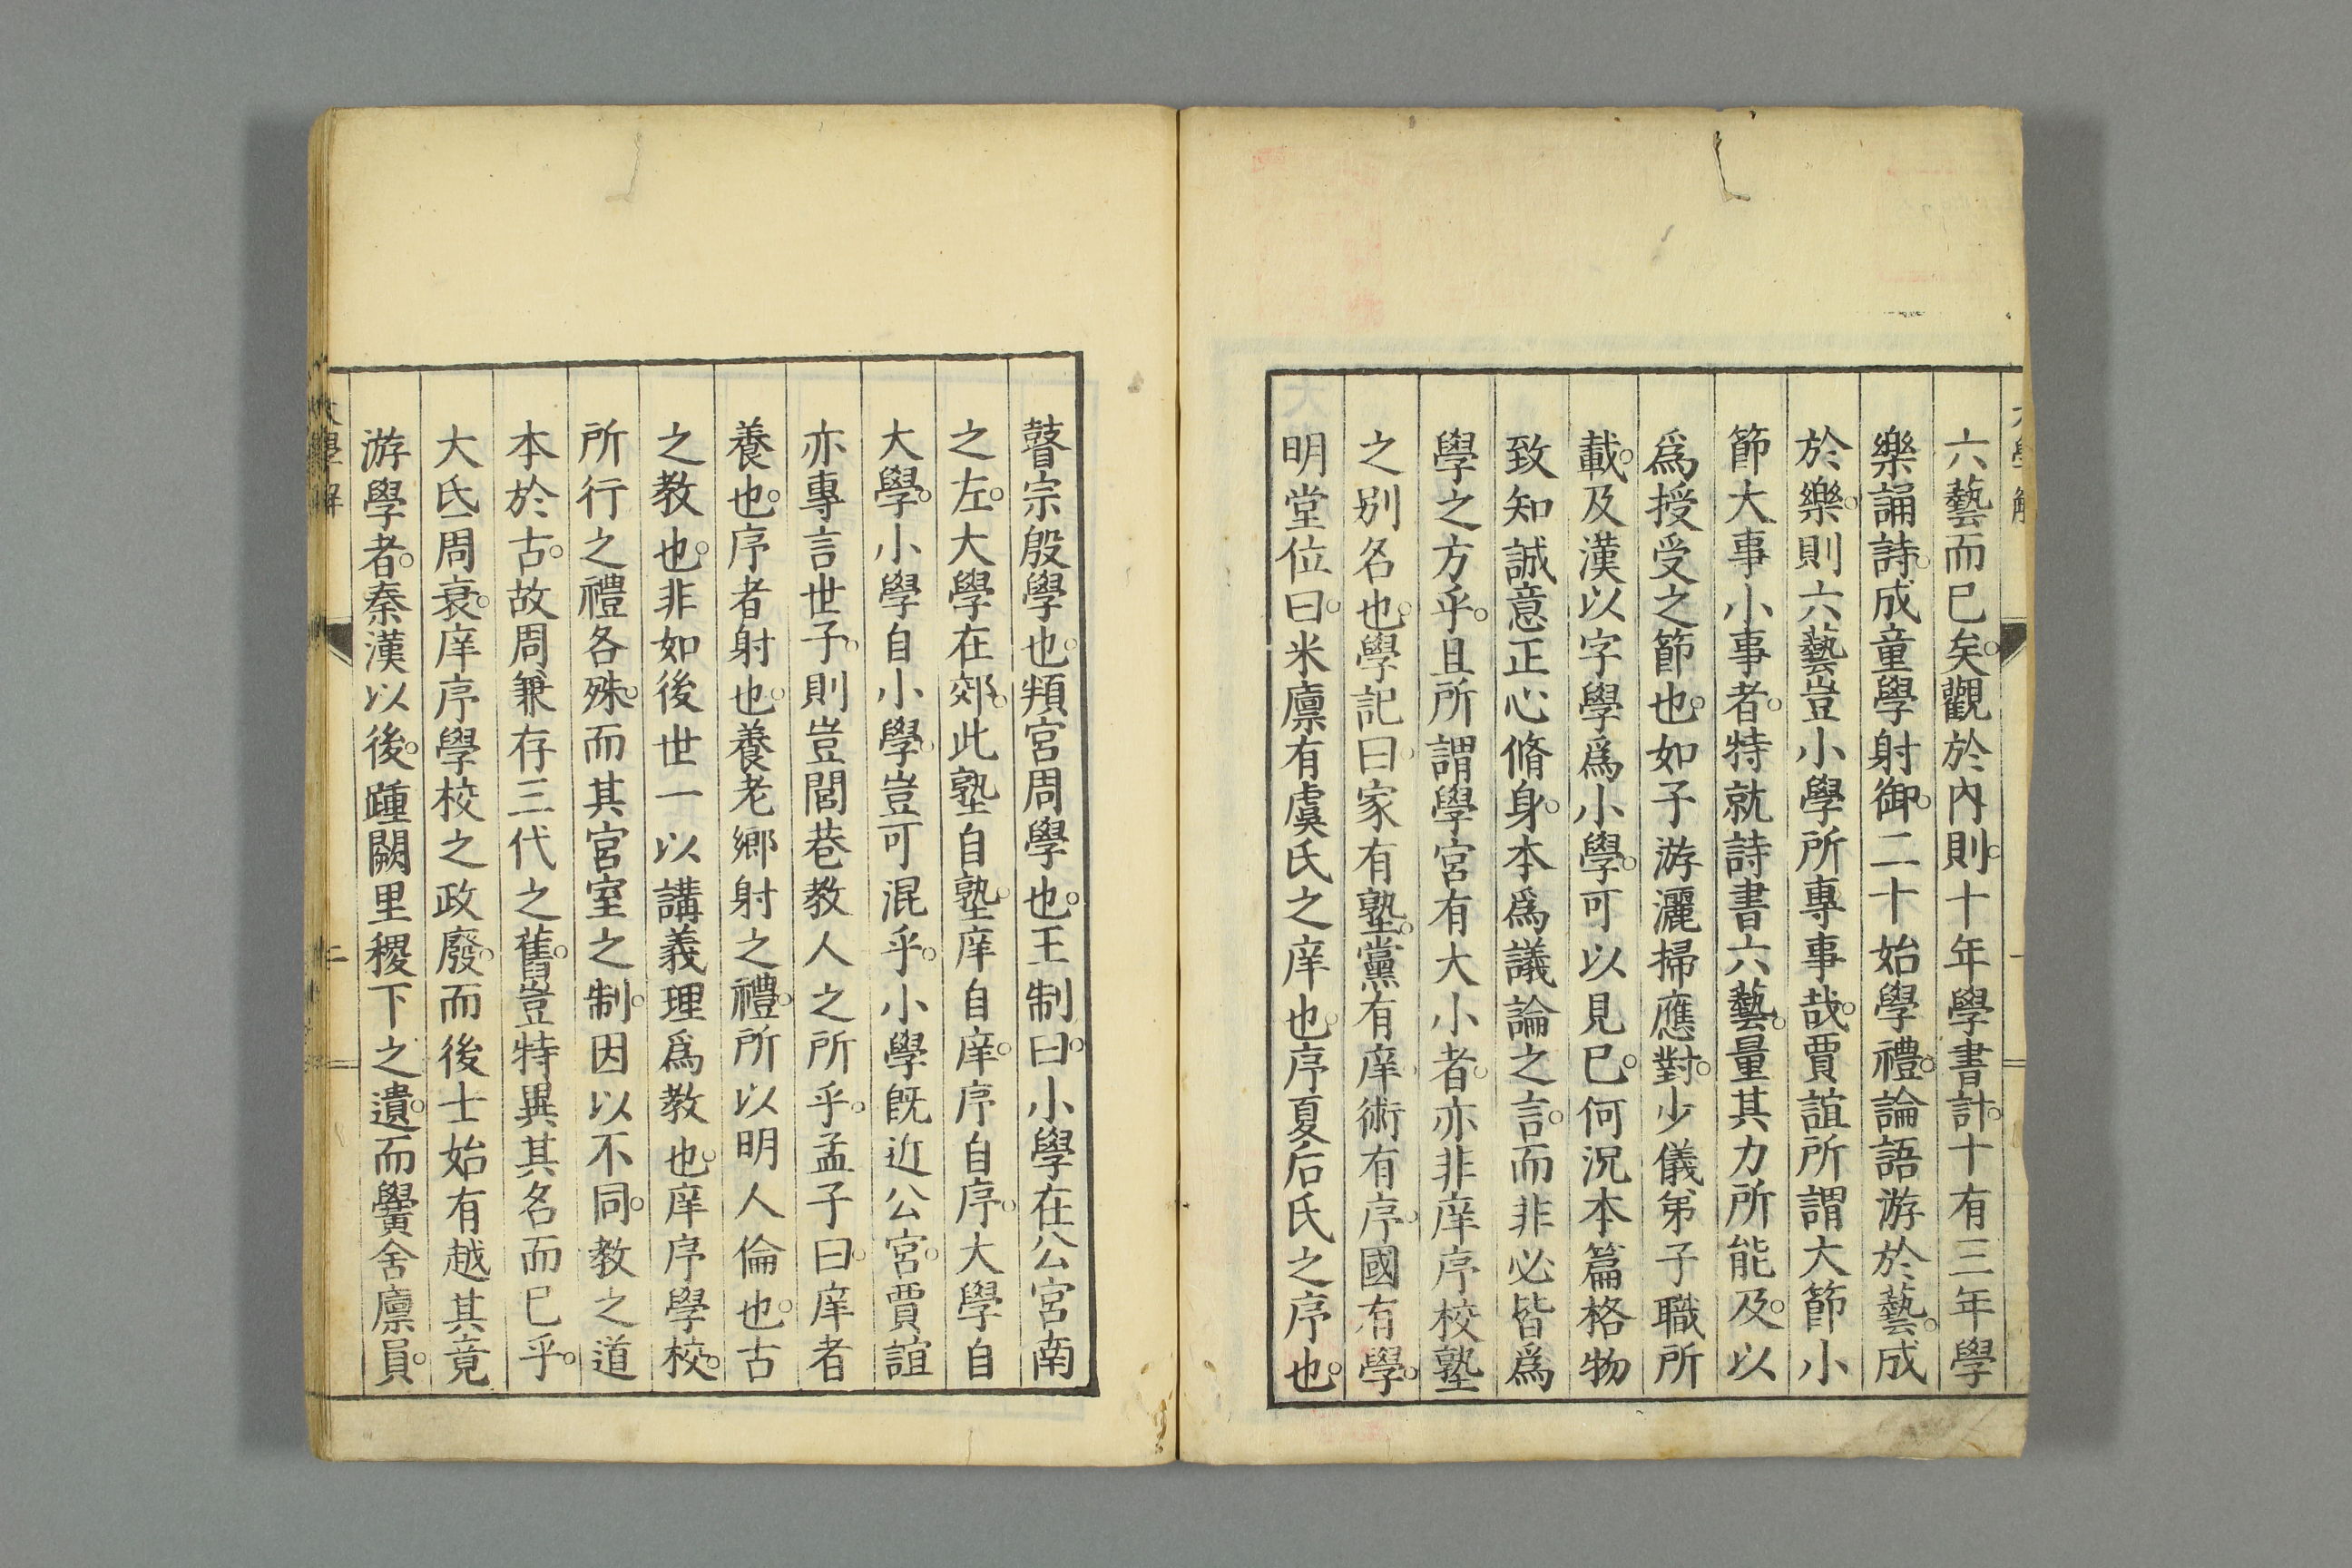 六藝而已矣。觀於內則。十年學書計。十有三年學
樂誦詩。成童學射御。二十始學禮。論語游於藝。成
於樂。則六藝豈小學所專事哉。賈誼所謂大節小
節大事小事者。特就詩書六藝。量其力所能及。以
爲授受之節也。如子游灑掃應對。少儀弟子職所
載。及漢以字學爲小學。可以見已。何況本篇格物
致知誠意正心脩身。本爲議論之言。而非必皆爲
學之方乎。且所謂學宮有大小者。亦非庠序校塾
之別名也。學記曰。家有塾。黨有庠。術有序。國有學。
明堂位曰。米廩有虞氏之庠也。序夏后氏之序也。
瞽宗殷學也。頖宮周學也。王制曰。小學在公宮南
之左。大學在郊。此塾自塾。庠自庠。序自序。大學自
大學。小學自小學。豈可混乎。小學既近公宮。賈誼
亦專言世子。則豈閭巷教人之所乎。孟子曰。庠者
養也。序者射也。養老鄉射之禮。所以明人倫也。古
之教也。非如後世一以講義理爲教也。庠序學校。
所行之禮各殊。而其宮室之制。因以不同。教之道
本於古。故周兼存三代之舊。豈特異其名而已乎。
大氐周衰。庠序學校之政廢。而後士始有越其竟
游學者。秦漢以後。踵闕里稷下之遺。而黌舍廩員。
大學解
二